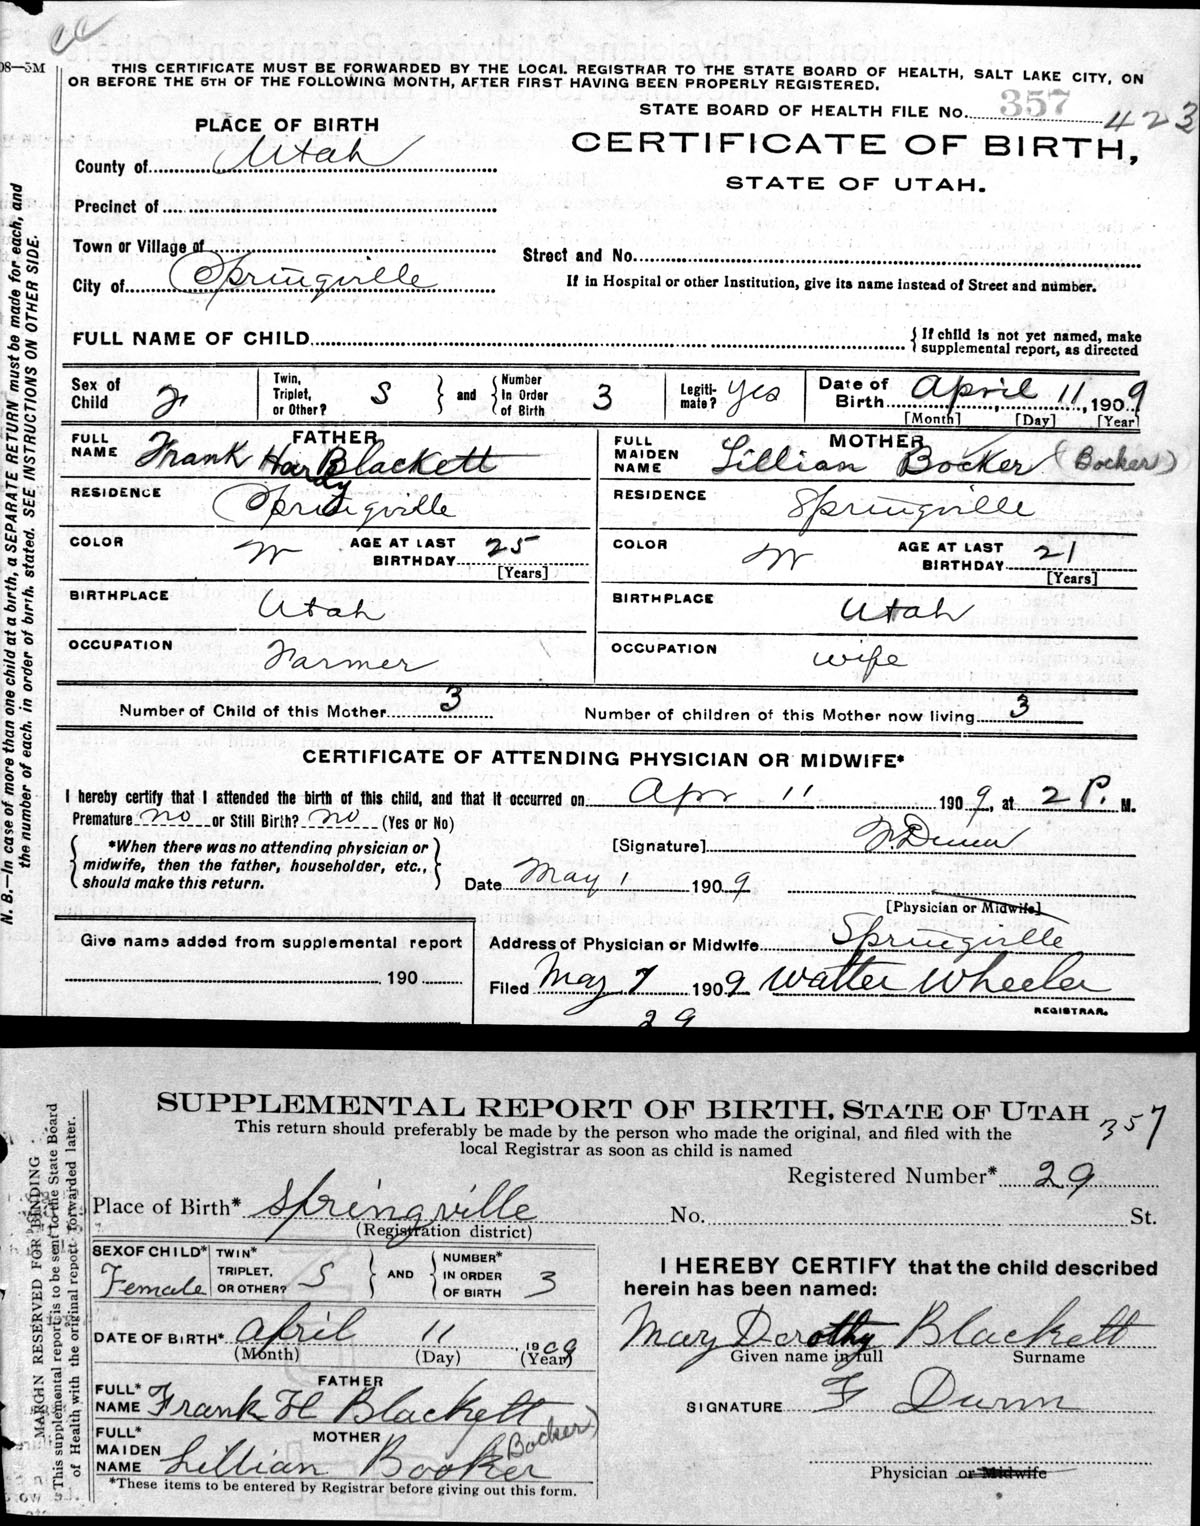 08—5M
THIS CERTIFICATE MUST BE FORWARDED BY THE LOCAL REGISTRAR TO THE STATE BOARD OF HEALTH, SALT LAKE CITY, ON
OR BEFORE THE 5TH OF THE FOLLOWING MONTH, AFTER FIRST HAVING BEEN PROPERLY REGISTERED.
STATE BOARD OF HEALTH FILE No. 357 423
PLACE OF BIRTH
CERTIFICATE OF BIRTH,
STATE OF UTAH.
County of Utah
Precinct of
Town or Village of
Street and No.
City of Springville
If in Hospital or other Institution, give its name instead of Street and number.
FULL NAME OF CHILD
{ If child is not yet named, make
supplemental report, as directed
Sex of Child F
Twin, Triplet, or Other? S } and { Number In Order of Birth 3
Legitimate? yes
Date of Birth April 11, 1909
[Month] [Day] [Year]
FATHER
FULL NAME Frank Hardy Blackett
MOTHER
FULL MAIDEN NAME Lillian Bocker (Bocker)
RESIDENCE Springville
RESIDENCE Springville
COLOR W AGE AT LAST BIRTHDAY 25 [Years]
COLOR W AGE AT LAST BIRTHDAY 21 [Years]
BIRTHPLACE Utah
BIRTHPLACE Utah
OCCUPATION Farmer
OCCUPATION wife
Number of Child of this Mother 3
Number of children of this Mother now living 3
CERTIFICATE OF ATTENDING PHYSICIAN OR MIDWIFE*
I hereby certify that I attended the birth of this child, and that it occurred on Apr 11 1909, at 2 P. M.
Premature no or Still Birth? no (Yes or No)
{ *When there was no attending physician or
midwife, then the father, householder, etc.,
should make this return. }
[Signature] F. Dunn
Date May 1 1909
[Physician or Midwife]
Give name added from supplemental report
190
Address of Physician or Midwife Springville
Filed May 7 1909 Walter Wheeler
REGISTRAR.
29
N. B.—In case of more than one child at a birth, a SEPARATE RETURN must be made for each, and
the number of each, in order of birth, stated. SEE INSTRUCTIONS ON OTHER SIDE.
SUPPLEMENTAL REPORT OF BIRTH, STATE OF UTAH 357
This return should preferably be made by the person who made the original, and filed with the
local Registrar as soon as child is named
Registered Number* 29
Place of Birth* Springville
(Registration district)
No. St.
SEX OF CHILD* Female
TWIN* TRIPLET, OR OTHER? S } AND { NUMBER* IN ORDER OF BIRTH 3
DATE OF BIRTH* April 11 1909
(Month) (Day) (Year)
FATHER
FULL* NAME Frank H Blackett
MOTHER
FULL* MAIDEN NAME Lillian Booker (Bocker)
*These items to be entered by Registrar before giving out this form.
I HEREBY CERTIFY that the child described
herein has been named:
Mary Dorothy Blackett
Given name in full Surname
SIGNATURE F Dunn
Physician or Midwife
MARGIN RESERVED FOR BINDING
This supplemental report is to be sent to the State Board
of Health with the original report forwarded later.